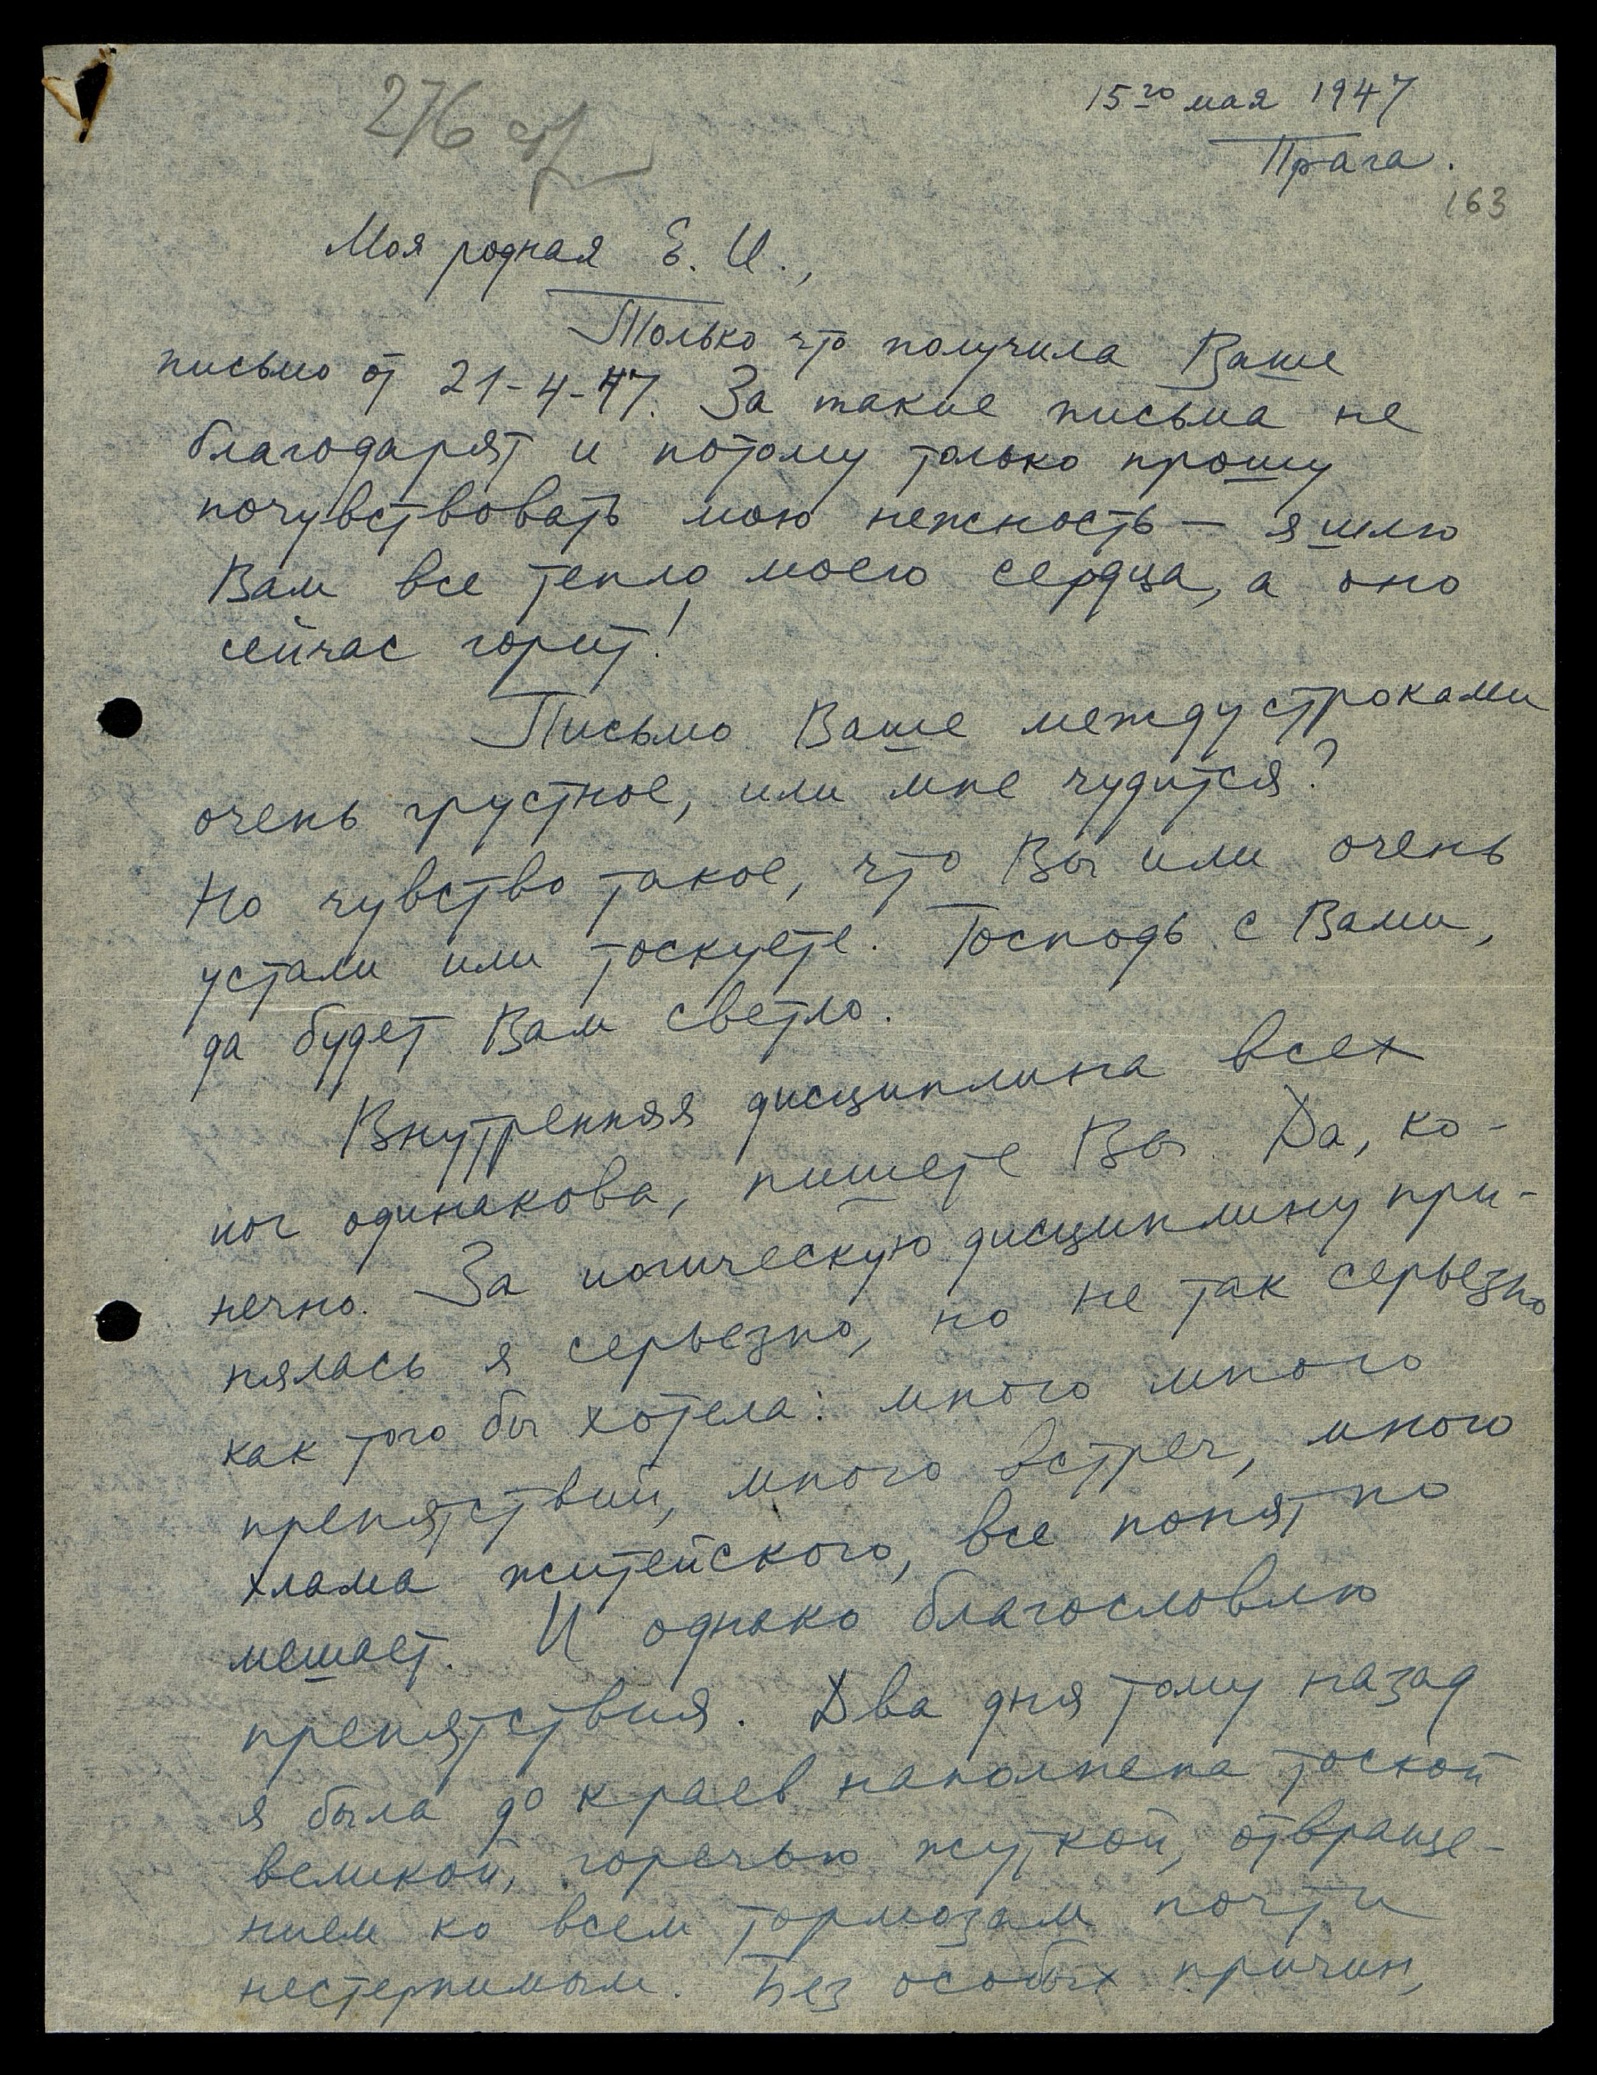 276
15го мая 1947
Прага.
163
Моя родная Е. И.,
Только что получила Ваше
письмо от 21-4-47. За такие письма не
благодарят и потому только прошу
почувствовать мою нежность – я шлю
Вам все тепло моего сердца, а оно
сейчас горит!
Письмо Ваше между строками
очень грустное, или мне чудится?
Но чувство такое, что Вы или очень
устали или тоскуете. Господь с Вами,
да будет Вам светло.
Внутренняя дисциплина всех
иог одинакова, пишете Вы. Да, ко-
нечно. За иогическую дисциплину при-
нялась я серьезно, но не так серьезно
как того бы хотела: много много
препятствий, много встреч, много
хлама житейского, все понятно
мешает. И однако благословлю
препятствия. Два дня тому назад
я была до краев наполнена тоской
великой, горечью жуткой, отвраще-
нием ко всем тормозам почти
нестерпимым. Без особых причин,